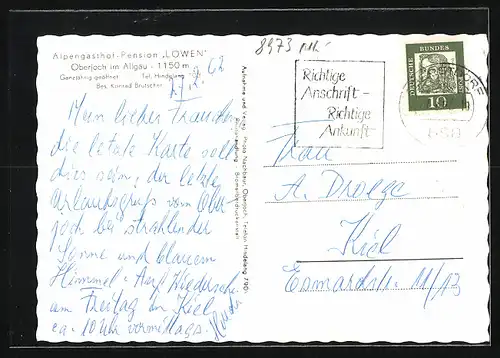 Alpengasthof-Pension „LÖWEN"
Oberjoch im Allgäu - 1150 m
Ganzjährig geöffnet Tel. Hindelang
Bes. Konrad Brutscher
27.2.62
Mein lieber
die letzte Karte soll
dies sein, der letzte
Urlaubsgruß vom Ober-
joch bei strahlender
Sonne und blauem
Himmel. Auf Wiedersehen
am Freitag in Kiel
ca. 10 Uhr vormittags.
Aufnahme und Verlag: Photo Nachbaur, Oberjoch, Telefon Hindelang
8973
Richtige
Anschrift -
Richtige
Ankunft
DEUTSCHE BUNDESPOST
10
Frau
A. Droege
Kiel
Esmarchstr. 11/13